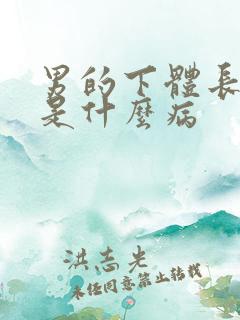 男的下體長
是什麼病
洪志光
未經同意禁止轉載